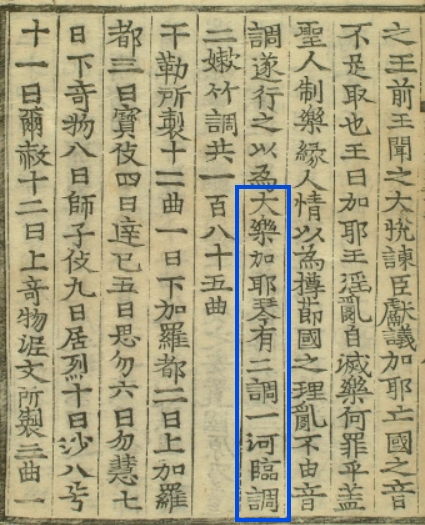 之王前王聞之大悅諫臣獻議加耶亡國之音
不足取也王曰加耶王淫亂自滅樂何罪乎盖
聖人制樂緣人情以為撙節國之理亂不由音
調遂行之以為大樂加耶琴有二調一河臨調
二嫰竹調共一百八十五曲
于勒所製十二曲一曰下加羅都二曰上加羅
都三曰寶伎四曰達已五曰思勿六曰勿慧七
曰下奇物八曰師子伎九曰居烈十曰沙八兮
十一曰爾赦十二曰上奇物泥文所製三曲一